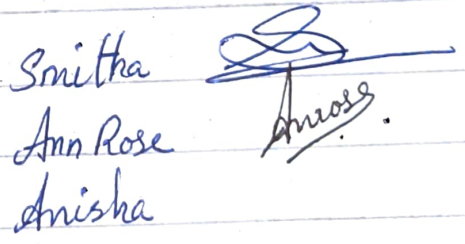 Smitha
Ann Rose Anrose
Anisha